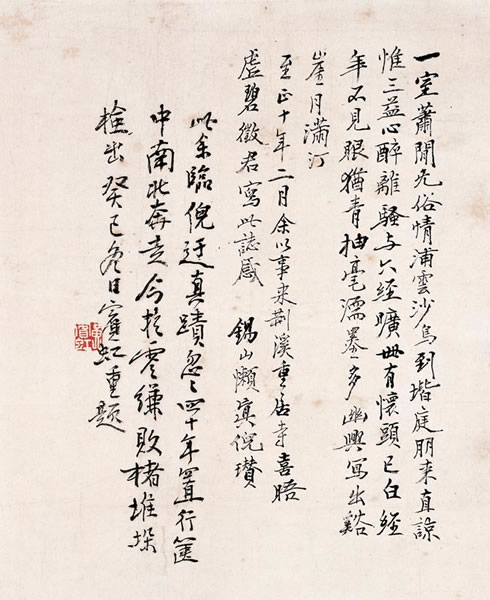 一室蕭閒无俗情浦雲沙鳥到堦庭朋来直諒
惟三益心醉離騷与六經曠世有懷頭已白經
年不見眼猶青抽毫濡墨多幽興寫出谿
崖月滿汀
至正十年二月余以事来荆溪重居寺喜晤
虚碧徵君寫此誌感 錫山懶倪瓚
此余臨倪迂真蹟忽〻四十年置行篋
中南北奔走今於零縑敗楮堆垛
檢出癸巳冬日賓虹重題